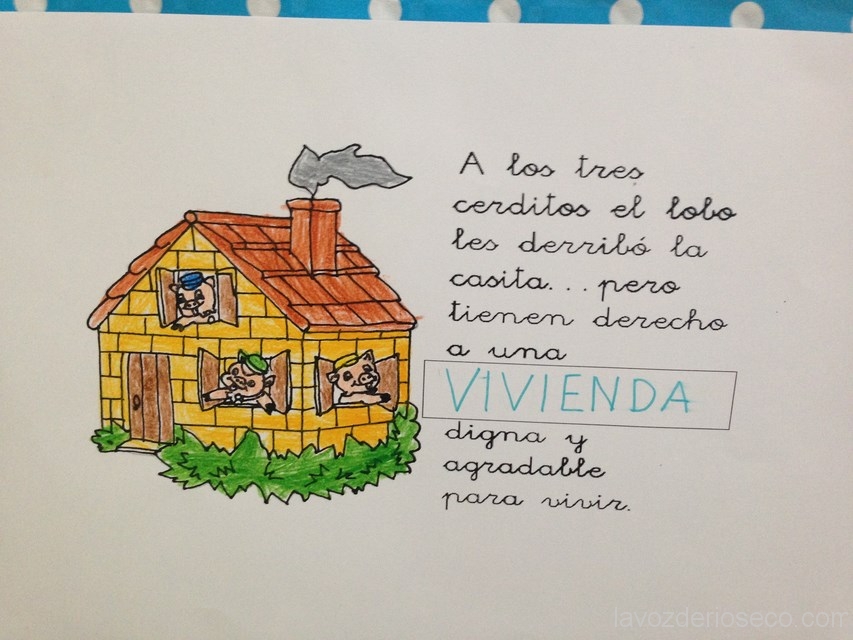 A los tres
cerditos el lobo
les derribó la
casita...pero
tienen derecho
a una
VIVIENDA
digna y
agradable
para vivir.
lavozderioseco.com